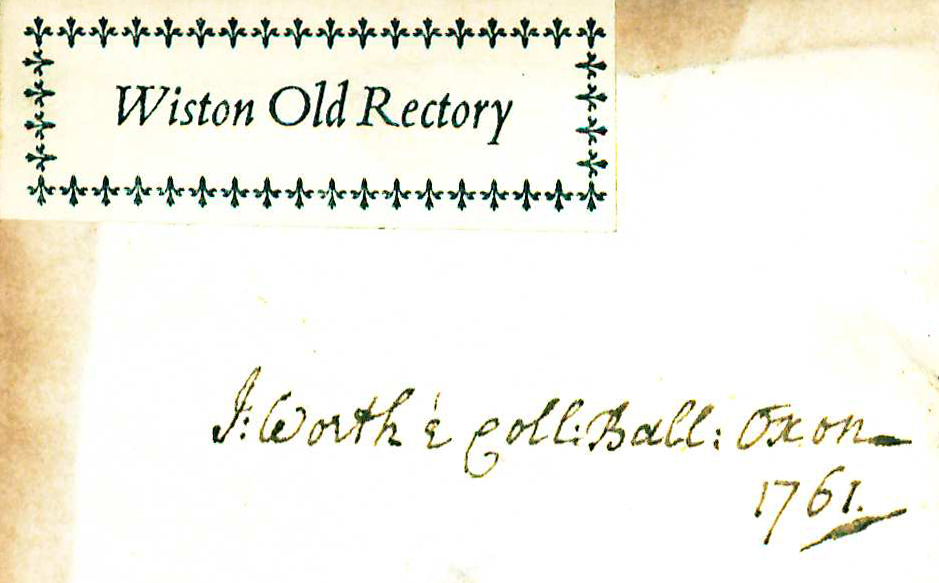 Wiston Old Rectory
J: Worth è Coll: Ball: Oxon
1761.